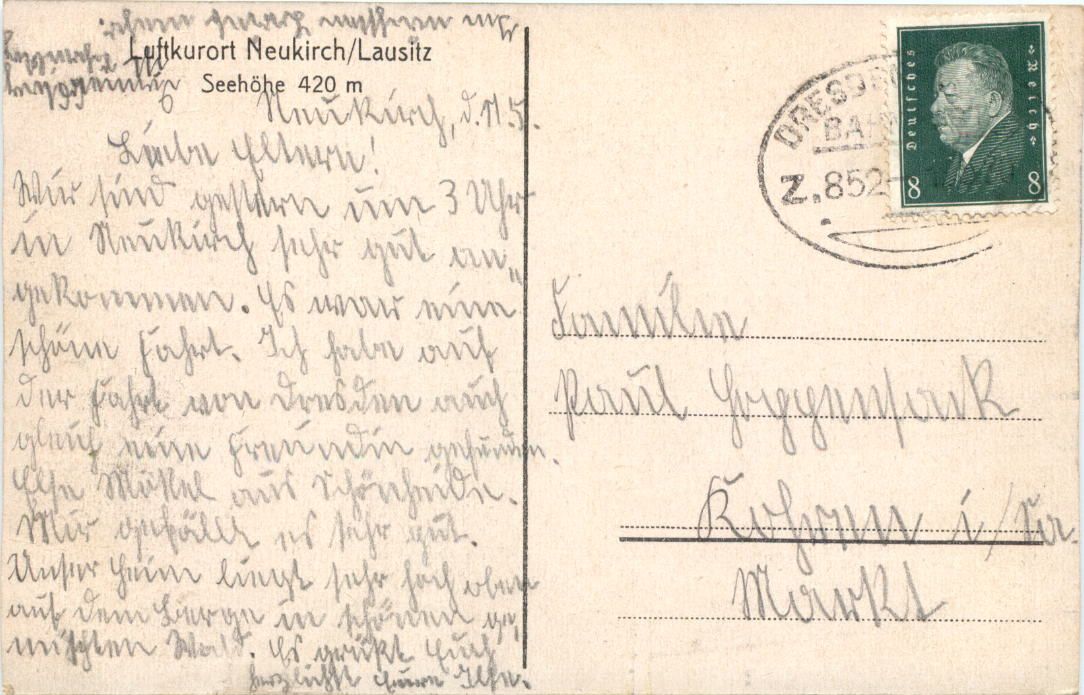 Luftkurort Neukirch/Lausitz
Seehöhe 420 m
Neukirch, d. 11.5.
Liebe Eltern!
Wir sind gestern um 3 Uhr
in Neukirch sehr gut an-
gekommen. Es war eine
schöne Fahrt. Ich habe auf
der Fahrt von Dresden auch
gleich eine Freundin gefunden.
Else Möckel aus Schönheide.
Mir gefällt es sehr gut.
Unser Heim liegt sehr hoch oben
auf dem Berge in schönen ge-
mischten Wald. Es grüßt Euch
herzlichst Eure Ilse.
DRESDEN
BAH
Z. 852
Deutsches Reich
8 8
Familie
Paul
Kohren i/Sa.
Markt